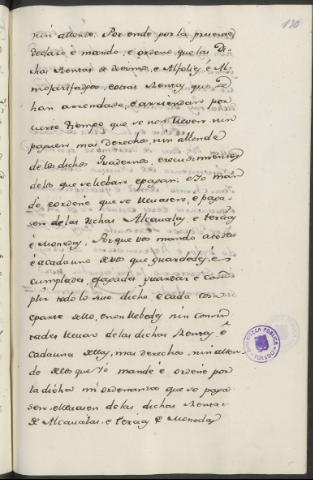 130
nin allende. Por ende por la presente
declaro é mando, é ordeno que las Di-
chas Rentas de Diezmos, e Alfolies, e Al-
mojarifadgos, e otras Rentas, que se
han arrendado, é arriendan por
cierto tiempo que se non lleven nin
paguen mas derechos, nin allende
de los dichos Quadernos, é recudimientos
de los que se llevaban e pagan: e Yo man-
de é ordene que se llevasen, e paga-
sen de las dichas Alcavalas, e tercias
é Monedas. Porque vos mando a todos
é a cada uno de vos que guardedes, e
cumplades, é fagades guardar é cum-
plir todo lo suso dicho, e cada cosa
e parte dello, e non llebedes, nin consin-
tades llevar de las dichas Rentas é
cada una dellas, mas derechos, nin allen-
de de los que Yo mandé é ordené por
la dicha mi ordenanza que se paga-
sen, e llevasen de las dichas Rentas
de Alcavalas, e tercias, é Monedas
BIBLIOTECA PÚBLICA
TOLEDO